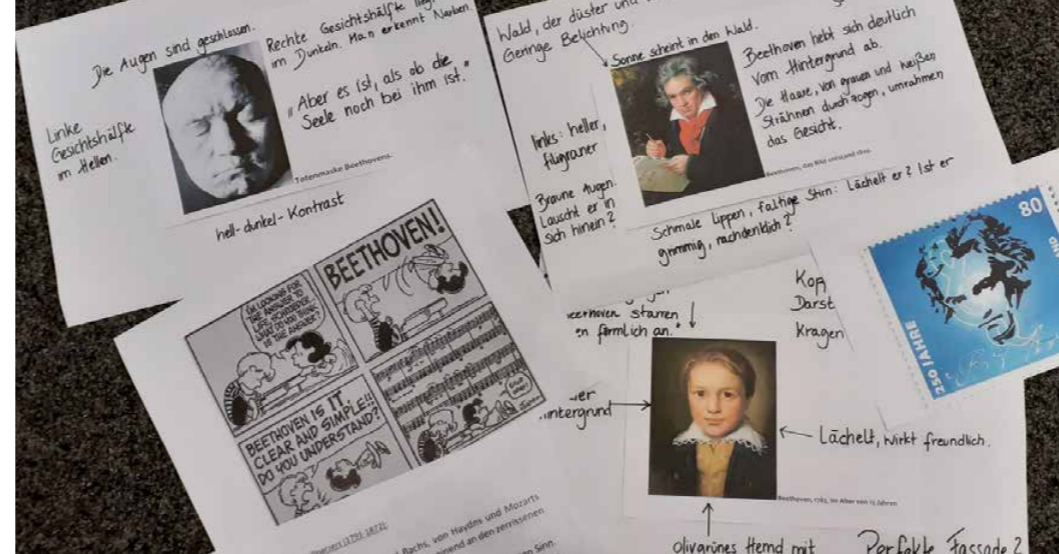 Die Augen sind geschlossen.
Rechte Gesichtshälfte liegt
im Dunkeln. Man erkennt Narben.
Linke
Gesichtshälfte
im Hellen.
„Aber es ist, als ob die
Seele noch bei ihm ist."
Totenmaske Beethovens.
hell-dunkel-Kontrast
Wald, der düster und
Geringe Belichtung.
Sonne scheint in den Wald.
Beethoven hebt sich deutlich
vom Hintergrund ab.
Die Haare, von grauen und weißen
Strähnen durchzogen, umrahmen
das Gesicht.
links: heller,
filigraner
Braune Augen:
Lauscht er in
sich hinein?
Beethoven, das Bild entstand 1820.
Schmale Lippen, faltige Stirn: Lächelt er? Ist er
grimmig, nachdenklich?
80
250 JAHRE
I'M LOOKING FOR
THE ANSWER TO
LIFE, SCHROEDER..
WHAT DO YOU THINK
IS THE ANSWER?
BEETHOVEN!
BEETHOVEN IS IT,
CLEAR AND SIMPLE!!
DO YOU UNDERSTAND?
Kop
Darst
Kragen
starren
förmlich an."
intergrund
Lächelt, wirkt freundlich.
Beethoven, 1783, im Alter von 13 Jahren
olivgrünes Hemd mit
Perfekte Fassade?
(1791-1872):
Bachs, von Haydns und Mozarts
an den zerrissenen
Sinn.